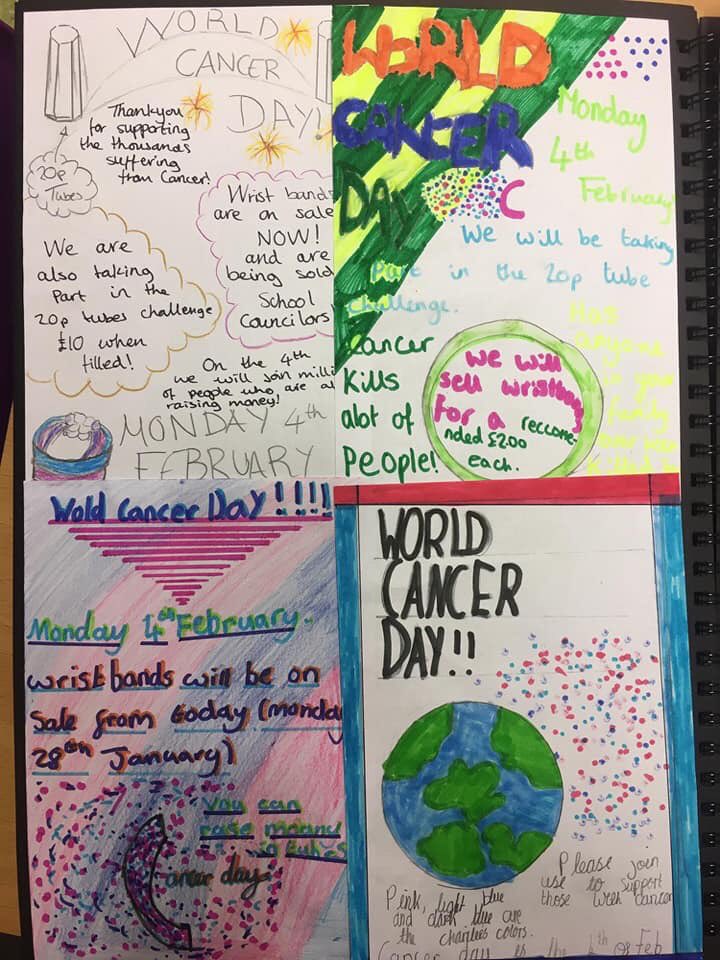 WORLD
CANCER
DAY!!
Thankyou
for supporting
the thousands
suffering
from Cancer!
20p
Tubes
Wrist bands
are on sale
NOW!
and are
being sold
School
Councilors
We are
also taking
Part in the
20p tubes challenge
£10 when
filled!
On the 4th
we will join milli
of people who are al
raising money!
MONDAY 4th
FEBRUARY
WORLD
CANCER
DAY
C
Monday
4th
February
We will be taking
Part in the 20p tube
challenge.
Cancer
Kills
alot of
People!
we will
sell wristban
for a reccome
nded £2.00
each.
Has
anyone
in your
family
ever been
killed
Wold Cancer Day!!!!
Monday 4th February.
wristbands will be on
Sale from today (monday
28th January)
You can
raise money
in tubes
Cancer day
WORLD
CANCER
DAY!!
Pink, light blue
and dark blue are
the charities colors.
Please join
use to support
those with cancer
Cancer day is the 4th of Feb